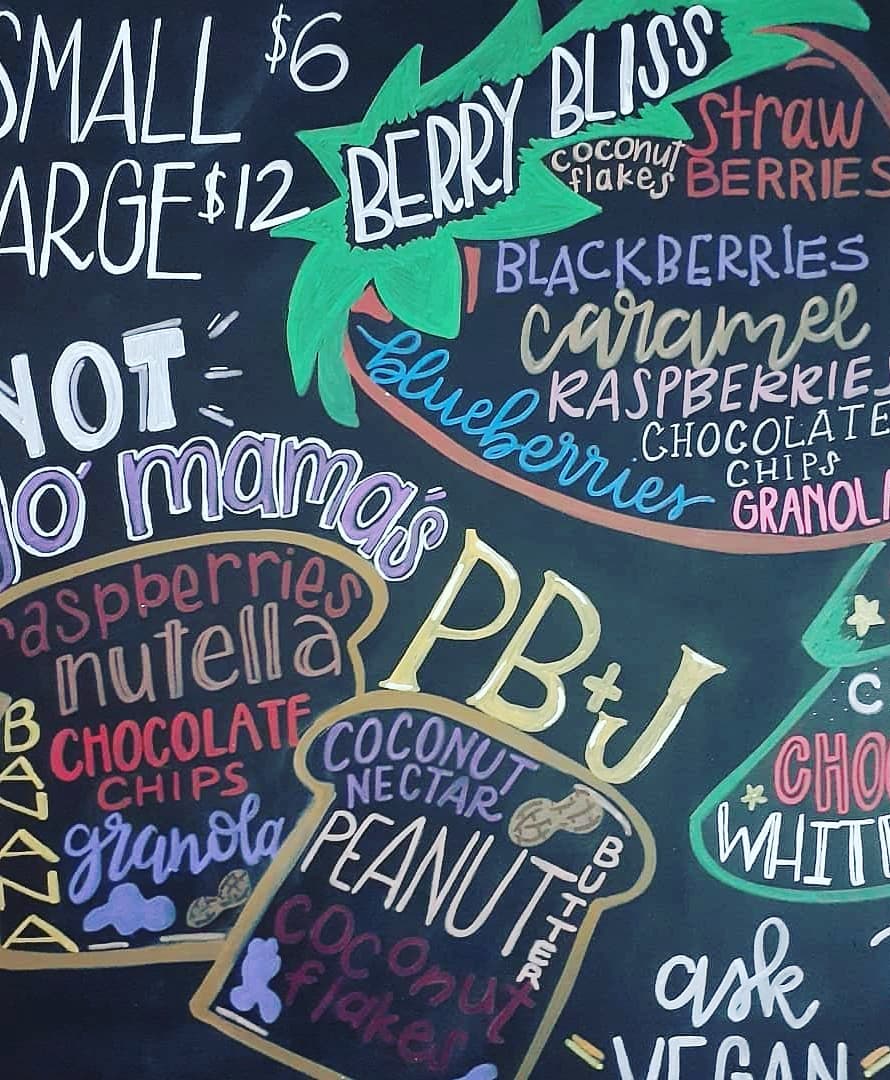 SMALL $6
LARGE $12
BERRY BLISS
coconut
flakes
Straw
BERRIES
BLACKBERRIES
caramel
blueberries
RASPBERRIES
CHOCOLATE
CHIPS
GRANOLA
NOT
Yo' mama's
raspberries
nutella
CHOCOLATE
CHIPS
granola
BANANA
PB+J
COCONUT
NECTAR
PEANUT
BUTTER
coconut
flakes
C
CHO
WHIT
ask
VEGAN